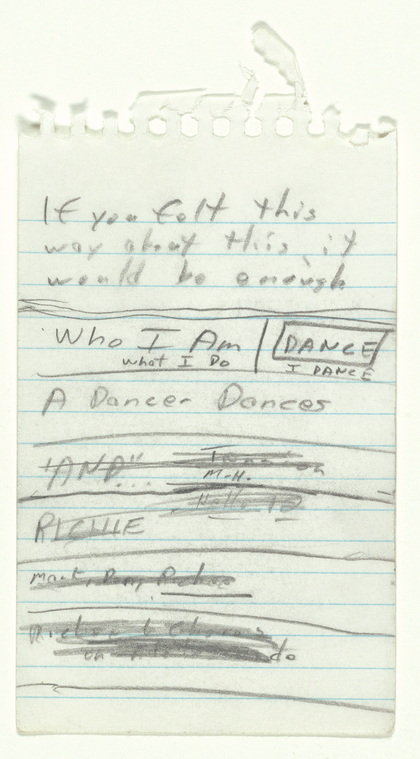 If you felt this
way about this, it
would be enough
Who I Am | DANCE
what I Do I DANCE
A Dancer Dances
"AND"...
M.H.
Hello 12
RICHIE
Mark, Richie
do